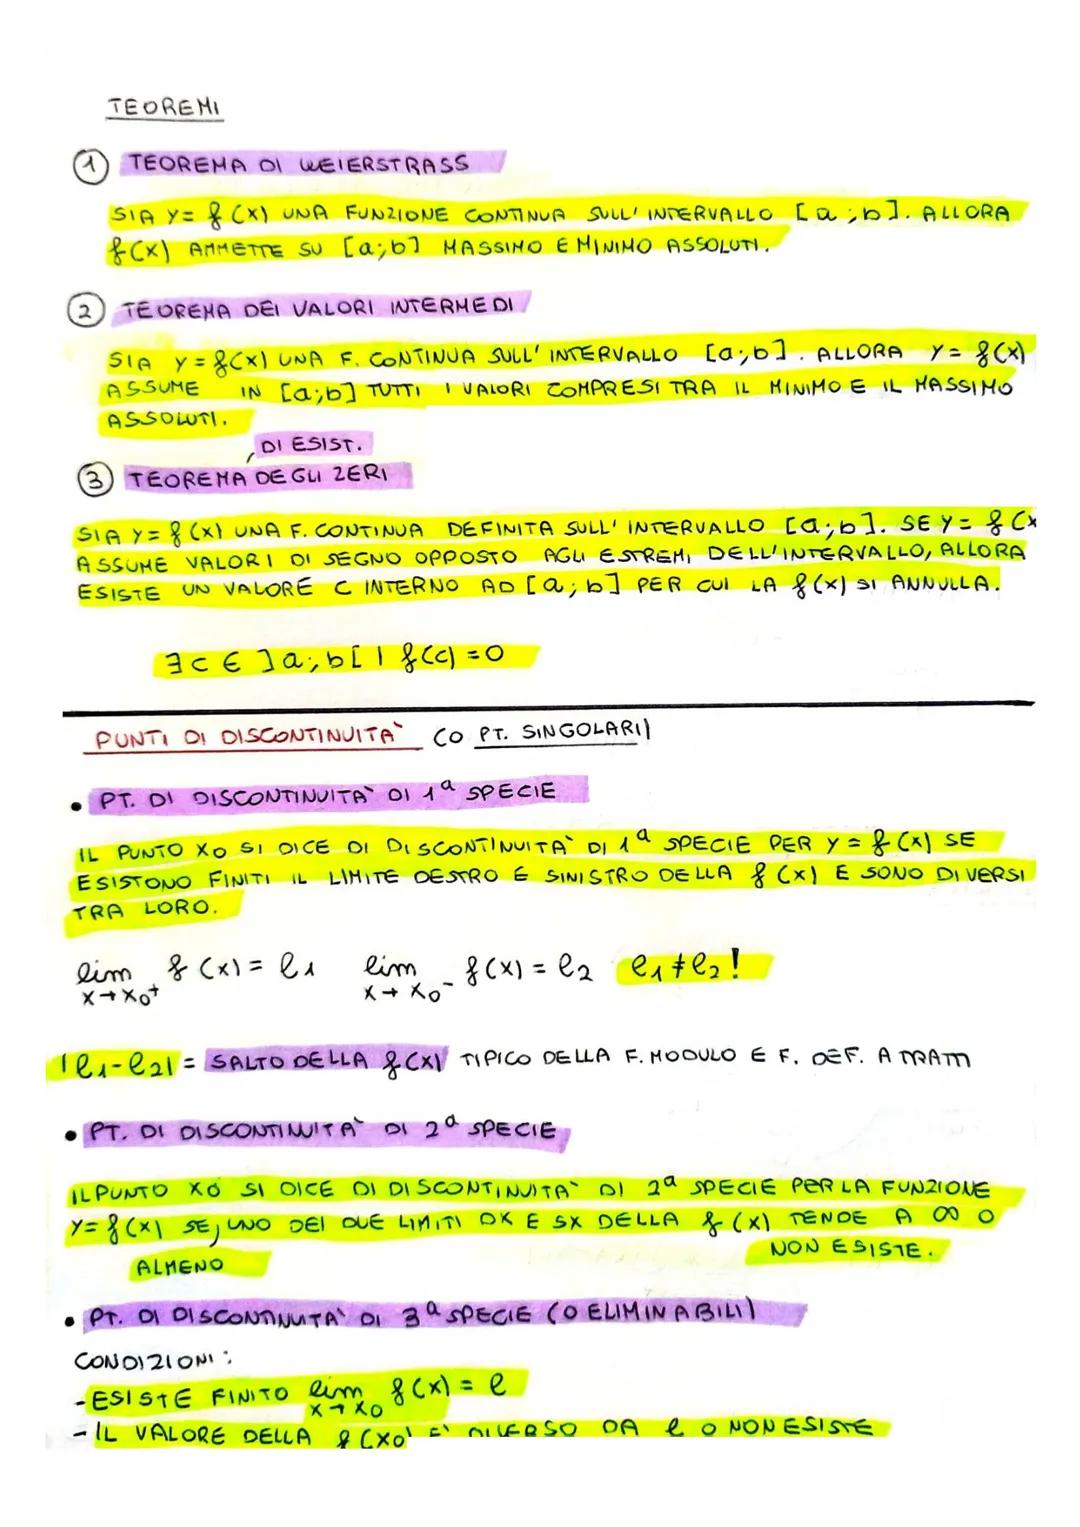 TEOREMI
1 TEOREMA DI WEIERSTRASS
SIA y = f(x) UNA FUNZIONE CONTINUA SULL' INTERVALLO [a;b]. ALLORA
f(x) AMMETTE SU [a;b] MASSIMO E MINIMO ASSOLUTI.
2 TEOREMA DEI VALORI INTERMEDI
SIA y = f(x) UNA F. CONTINUA SULL' INTERVALLO [a;b]. ALLORA y = f(x)
ASSUME IN [a;b] TUTTI I VALORI COMPRESI TRA IL MINIMO E IL MASSIMO
ASSOLUTI.
DI ESIST.
3 TEOREMA DEGLI ZERI
SIA y = f(x) UNA F. CONTINUA DEFINITA SULL' INTERVALLO [a;b]. SE y = f(x
ASSUME VALORI DI SEGNO OPPOSTO AGLI ESTREMI DELL'INTERVALLO, ALLORA
ESISTE UN VALORE C INTERNO AD [a;b] PER CUI LA f(x) SI ANNULLA.
∃ c ∈ ]a;b[ | f(c) = 0
PUNTI DI DISCONTINUITÀ (O PT. SINGOLARI)
• PT. DI DISCONTINUITÀ DI 1ª SPECIE
IL PUNTO X0 SI DICE DI DISCONTINUITÀ DI 1ª SPECIE PER y = f(x) SE
ESISTONO FINITI IL LIMITE DESTRO E SINISTRO DELLA f(x) E SONO DIVERSI
TRA LORO.
lim f(x) = l1 lim f(x) = l2 l1 ≠ l2!
x→x0+ x→x0-
|l1-l2| = SALTO DELLA f(x) TIPICO DELLA F. MODULO E F. DEF. A TRATTI
• PT. DI DISCONTINUITÀ DI 2ª SPECIE
IL PUNTO X0 SI DICE DI DISCONTINUITÀ DI 2ª SPECIE PER LA FUNZIONE
y = f(x) SE, UNO DEI DUE LIMITI DX E SX DELLA f(x) TENDE A ∞ O
NON ESISTE.
ALMENO
• PT. DI DISCONTINUITÀ DI 3ª SPECIE (O ELIMINABILI)
CONDIZIONI:
- ESISTE FINITO lim f(x) = l
x→x0
- IL VALORE DELLA f(x0) E' DIVERSO DA l O NON ESISTE